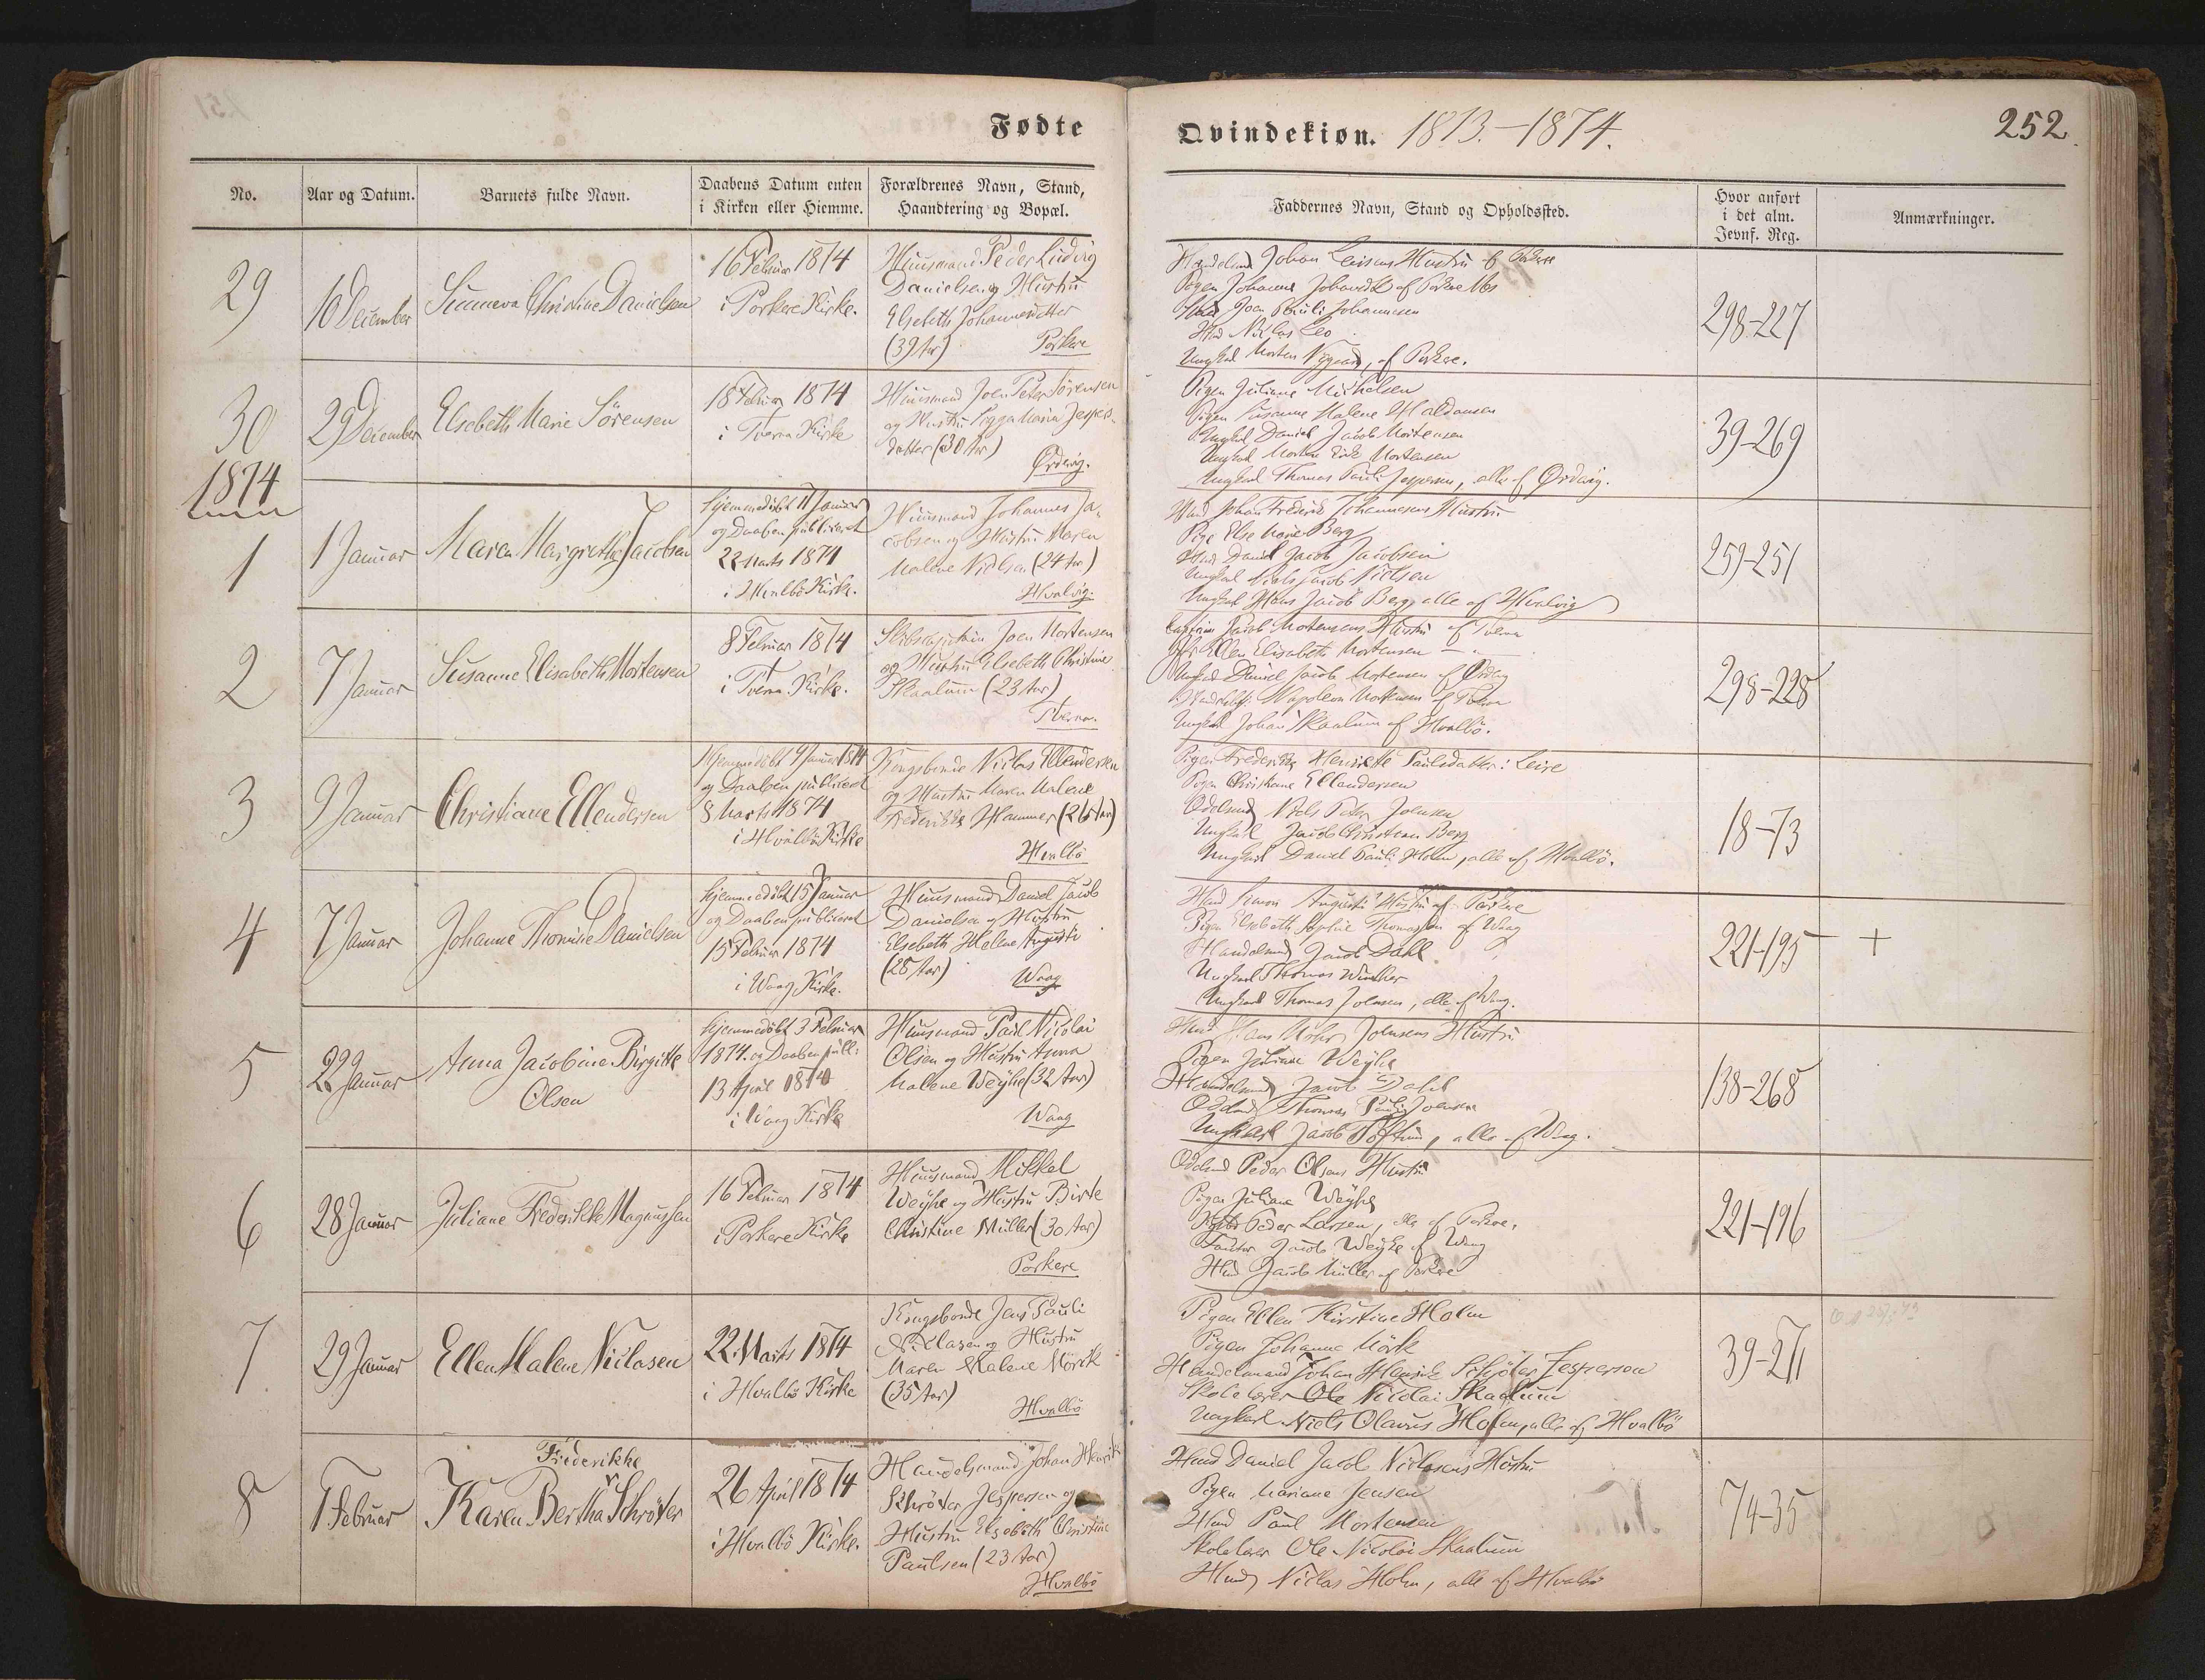 Fødte
Qvindekiøn. 1873.-1874.
252.
No.
Aar og Datum.
Barnets fulde Navn.
Daabens Datum enten
i Kirken eller Hiemme.
Forældrenes Navn, Stand,
Haandtering og Bopæl.
Faddernes Navn, Stand og Opholdssted.
Hvor anført
i det alm.
Jevnf. Reg.
Anmærkninger.
29
16 December
Sunneva Christine Danielsen
16 Februar 1874
i Porkere Kirke.
Huusmand Peder Ludvig
Danielsen og Hustru
Elsebeth Johannesdatter
(39 Aar)
Porkere
Johan Hustru af Porkere
Pigen Johanne af Porkere
Joen Pauli Johannesen
Niclas Leo
Ungkarl Morten Nygaard, af Porkere.
298-227
30
29 December
Elsebeth Marie Sörensen
18 Februar 1874
i Tverra Kirke
Huusmand Joen Peter Sörensen
og Hustru Maria Jespers-
datter (30 Aar)
Ördevig.
Pigen Juliane Michelsen
Pigen Susanne Malene Haldansen
Ungkarl Daniel Jacob Mortensen
Ungkarl Morten Mortensen
Ungkarl Thomas Pauli Jespersen, alle af Ördevig.
39-269
1874
1
1 Januar
Maren Margrethe Jacobsen
hjemmedöbt 11 Januar
og Daaben publiceret
22 Marts 1874
i Hvalbö Kirke.
Huusmand Johannes Ja-
cobsen og Hustru Maren
Malene Nielsen (24 Aar)
Hvalvig.
Huusmd Johan Frederik Johannesens Hustru
Pige Else Marie Berg
Daniel Jacob Jacobsen
Ungkarl Niels Jacob Nielsen
Ungkarl Hans Jacob Berg, alle af Hvalvig
259-251
2
7 Januar
Susanne Elisabeth Mortensen
8 Februar 1874
i Tverra Kirke.
Joen Mortensen
og Hustru Elsebeth Christine
Skaalum (23 Aar)
Tverra.
Jacob Mortensens Hustru af Tverra
Ellen Elisabeth Mortensen
Ungkarl Daniel Jacob Mortensen af Ördevig
Napoleon Mortensen af Tverra
Ungkarl Johan Skaalum af Hvalbö.
298-228
3
9 Januar
Christiane Ellendersen
Hjemmedöbt 9 Januar 1874
og Daaben publiceret
8 Marts 1874
i Hvalbö Kirke
Kongsbonde Niclas Ellendersen
og Hustru Maren Malene
Frederikke Hammer (26 Aar)
Hvalbö
Pigen Frederikke Henriette Paulsdatter i Leire
Pigen Christiane Ellendersen
Odelsmd Niels Peter Joensen
Ungkarl Jacob Christian Berg
Ungkarl Daniel Pauli Holm, alle af Hvalbö.
18-73
4
7 Januar
Johanne Thomine Danielsen
hjemmedöbt 15 Januar
og Daaben publiceret
15 Februar 1874
i Waag Kirke.
Huusmand Daniel Jacob
Danielsen og Hustru
Elsebeth Helene Augusti
(28 Aar)
Waag
Simon Augusti Hustru af Porkere
Pigen Elsebeth Sophie Thomassen af Waag
Handelsmd Jacob Dahl
Ungkarl Thomas Winther
Ungkarl Thomas Joensen, alle af Waag.
221-195
+
5
22 Januar
Anna Jacobine Birgitte
Olsen
hjemmedöbt 3 Februar
1874. og Daaben publ:
13 April 1874
i Waag Kirke
Huusmand Paul Nicolai
Olsen og Hustru Anna
Malene Weyhe (32 Aar)
Waag
Hans Mohr Joensens Hustru
Pigen Juliane Weyhe
Handelsmd Jacob Dahl
Odelsmd Thomas Pauli Joensen
Ungkarl Jacob Toftum, alle af Waag.
138-268
6
28 Januar
Juliane Frederikke Magnussen
16 Februar 1874
i Porkere Kirke
Huusmand Mikkel
Weyhe og Hustru Birte
Christine Müller (30 Aar)
Porkere
Odelsmd Peder Olsens Hustru
Pigen Juliane Weyhe
Peder Larsen, alle af Porkere.
Jacob Weyhe af Waag
Jacob Müller af Porkere
221-196
7
29 Januar
Ellen Malene Niclasen
22. Marts 1874
i Hvalbö Kirke
Kongsbonde Jens Pauli
Niclasen og Hustru
Maren Malene Mörk
(35 Aar)
Hvalbö
Pigen Ellen Kirstine Holm
Pigen Johanne Mörk
Handelsmand Johan Henrik Schröter Jespersen
Skolelærer Ole Nicolai Skaalum
Ungkarl Niels Olavus Holm, alle af Hvalbö
39-271
8
1 Februar
Frederikke
Karen Bertha Schröter
26 April 1874
i Hvalbö Kirke.
Handelsmand Johan Henrik
Schröter Jespersen og
Hustru Elsebeth Christine
Paulsen (23 Aar)
Hvalbö
Huusmd Daniel Jacob Niclasens Hustru
Pigen Mariane Jensen
Huusmd Paul Mortensen
Skolelærer Ole Nicolai Skaalum
Huusmd Niclas Holm, alle af Hvalbö
74-35